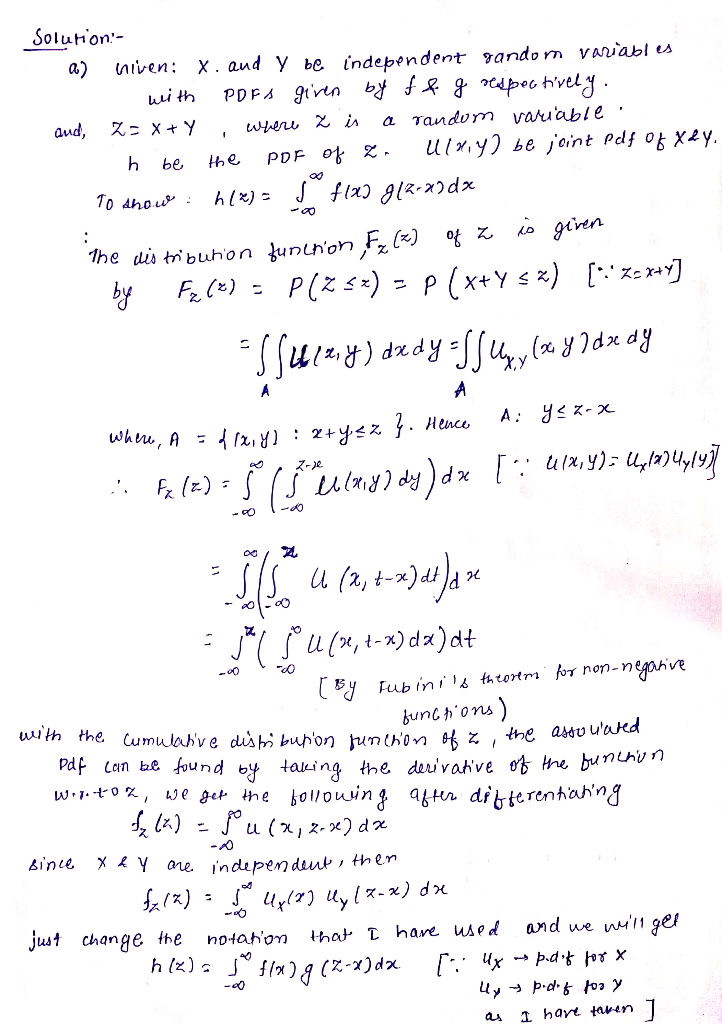 Solution:-
a) Given: X. and Y be independent random variables
with PDFs given by f & g respectively.
and, Z = X + Y , where Z is a random variable.
h be the PDF of Z. U(x,y) be joint pdf of X&Y.
To show : h(z) = ∫_{-∞}^{∞} f(x) g(z-x) dx
:
The distribution function, F_Z(z) of Z is given
by F_Z(z) = P(Z ≤ z) = P(X+Y ≤ z) [∵ Z = X+Y]
= ∬_A U(x,y) dx dy = ∬_A U_{X,Y}(x,y) dx dy
where, A = {(x,y) : x+y ≤ z}. Hence A: y ≤ z-x
∴ F_Z(z) = ∫_{-∞}^{∞} (∫_{-∞}^{z-x} U(x,y) dy) dx [∵ U(x,y) = U_x(x) U_y(y)]
= ∫_{-∞}^{∞} (∫_{-∞}^{z} U(x, t-x) dt) dx
= ∫_{-∞}^{z} (∫_{-∞}^{∞} U(x, t-x) dx) dt
[By Fubini's theorem for non-negative
functions)
with the cumulative distribution function of Z, the associated
pdf can be found by taking the derivative of the function
w.r.to z, we get the following after differentiating
f_Z(z) = ∫_{-∞}^{∞} U(x, z-x) dx
since X & Y are independent, then
f_Z(z) = ∫_{-∞}^{∞} U_x(x) U_y(z-x) dx
just change the notation that I have used and we will get
h(z) = ∫_{-∞}^{∞} f(x) g(z-x) dx [∵ U_x → p.d.f for X
U_y → p.d.f for Y
as I have taken]